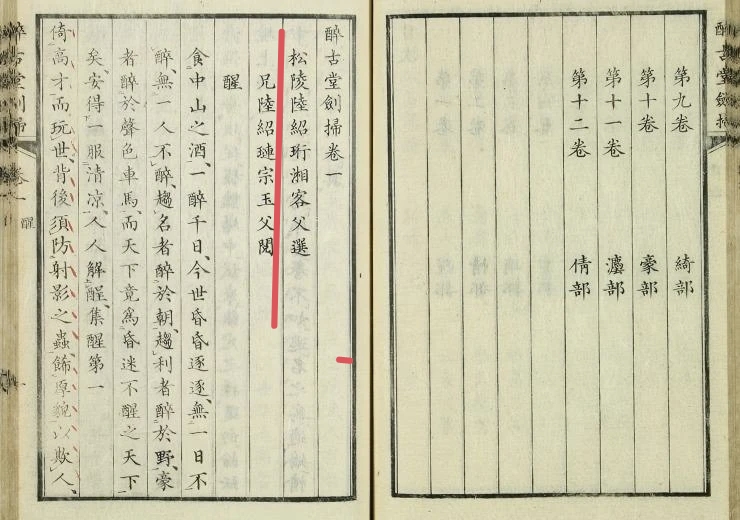 第九卷 綺部
第十卷 豪部
第十一卷 灋部
第十二卷 倩部
醉古堂劍掃卷一
松陵陸紹珩湘客父選
兄陸紹璉宗玉父閱
醒
食中山之酒、一醉千日、今世昏昏逐逐、無一日不
醉、無一人不醉、趨名者醉於朝、趨利者醉於野、豪
者醉於聲色車馬、而天下竟爲昏迷不醒之天下
矣、安得一服清凉、人人解酲、集醒第一
倚高才而玩世、背後須防射影之蟲、飾厚貌以欺人、
醉古堂劍掃
卷一
醒